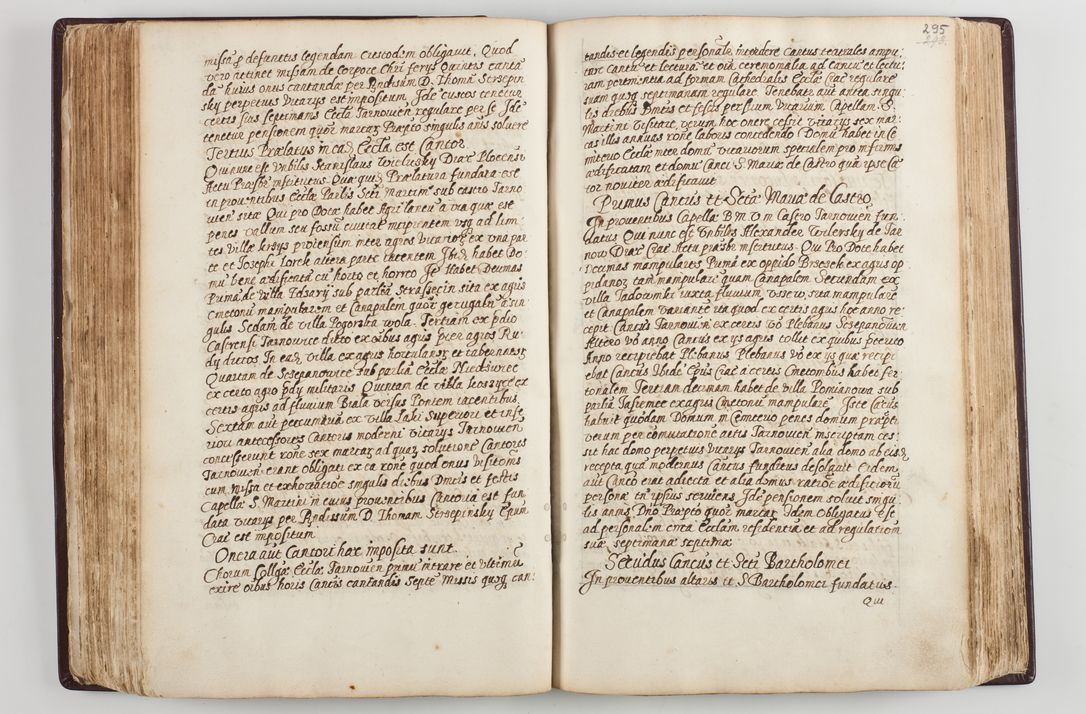 missã ꝓ defunctis legendam custodem obligauit, Quod
vero attinet missam de Corpore Chri ferijs Quintis canta
da huius onus cantanda per Rndissum D. Thomã Strsepin
sky perpetuis vicarys est impositum, Ide custos tenetur
certis suis septimanis Eccla Tarnouien regulare per se Ide
tenetur pensionem quor marcaz Pracpto singulis anis soluere
Tertius Prælatus in eaz Eccla est Cantor
Qui nunc est Vnbilis Stanislaus Wielusky Diæc Plocensi
Actu Prasbr institutus. Quæ quiz Prælatura fundata est
in prouentibus Eccla Parlis Scti Martini sub castro Tarno
uien sita Qui pro Dote habet Agri laneu a via quæ est
penes vallum seu fossu ciuitat incipientem vsq ad limi
tes villæ
te et Josephi Jorck altera parte iacentem Ibid habet Do
mu bene ædificenta cu horto et horreo Ite Habet Decimas
Primã de villa Idsary sub parlia Strassecin sita ex agris
Cmetonu manipularem et Canapalem quor gerugaln a sin
gulis Sedam de villa Pogorska wola. Tertiam ex pdio
Castrensi Tarnouice dicto ex oibus agris præter agros Ru
dy dictos In eaz villa ex agris hortulanoz et tabernatoz
Quartam de Scsepanouice sub parlia Eccla Niedswiec
ex certo agro pdy militaris Quintam de villa
certis agris ad fluuium Biala versus Pontem iacentibus
Sextam aut pecuniariã ex villa Laki Superiori et infe
riori antecessores Cantoris moderni vicarys Tarnouien
concesserunt rone sex marcaz ad quaz solutione Cantores
Tarnouien erant obligati ex ea rone quod onus visitonis
cum missa et exhortatioe singulis diebus Dnicis et festis
Capella S. Martini in cuius prouentibus Cantoria est fun
data vicarys per Rndissum D. Thomam Strsepinsky Epum
Crac est impositum.
Onera aut Cantori hæc imposita sunt.
Chorum Collgæ Eccla Tarnouien primu intrare et vltimu
exire oibus horis Canois cantandis Septe Missis quoz can:
295
tandis et legendis personalr intendere Cantus textrales ampu:
tare Cantu et lectura et oia ceremonialia ad Cantu et lectu:
ram pertinentia ad formam Cathedralis Eccla Crac regulare
suam quoz septimanam regulare Tenebatr aut antea singu
lis diebus Dnicis et festis per suum Vicarium Capellam S.
Martini visitare, verum hoc onere cessit vicarys sex mar:
cas illis annuas rone laboris concedendo Domu habet in Ce
miterio Eccla inter domu vicariorum specialem pro infirmis
ædificatam et domu Canci S. Mariæ de Castro quã ipse Ca
tor nouiter ædificauit
Primus Cancus tt Sctæ Mariæ de Castro
In prouentibus Capellæ B.M.V. in Castro Tarnouien fun
datus Qui nunc est Vnbilis Alexander Wilersky de Tar
now Diæc Crac Actu præsbr institutus. Qui Pro Dote habet
Decimas manipulares Primã ex oppido Brsesek ex agris op
pidanoz tam manipularẽ quam Canapalem Secundam ex
villa Jadowniki iuxta fluuium vsswo, sita manipularẽ
et Canapalem variante ita quod ex certis agris hoc anno re
cepit Cancus Tarnouien ex certis vo Plebanus Scsepanouien
Altero vo anno Cancus ex ys agris collit ex quibus præterito
Anno recipiebat Plebanus Plebanus vo ex ys quæ recipi
ebat Cancus Ibide Epus Crac a certis Cmetonibus habet fer
tonalem Tertiam decimam habet de villa Pomianowa sub
parlia Jasienice ex agris Cmetonu manipularẽ Iste Cacus
habuit quodam Domum in Cemeterio penes domum præpti
verum per comutatione actis Tarnouien inscriptam ces:
sit hac domo perpetuo vicarys Tarnouien alia domo ab eisz
recepta quã modernus Cancus funditus desolauit Eidem
aut Canco erat adiecta et alia domus ratioe ædificioru
personæ tn ipsius seruiens, Ide pensionem soluit singu
lis annis Dno Præpto quor marcas Idem Obligatus est
ad personalem circa Ecclam residentiã et ad regulatiom
suæ septimanæ septima
Secudus Cancus tt Scti Bartholomei
In prouentibus altaris tt S Bartholomei fundatus.
Qui